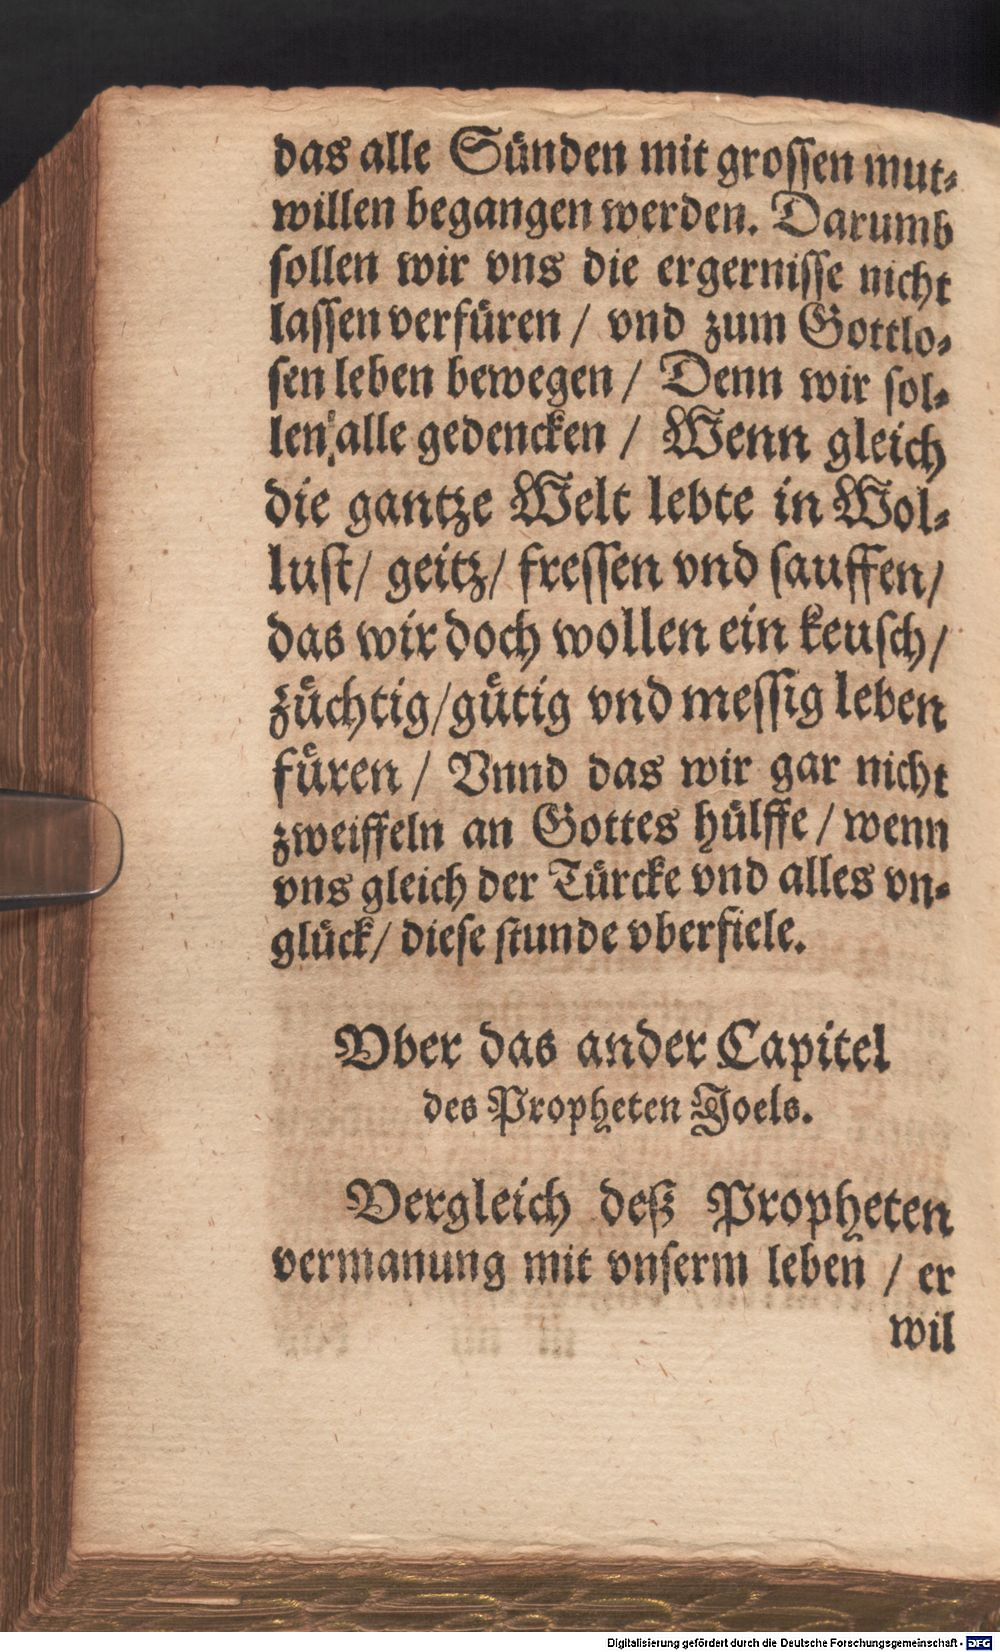 das alle Sünden mit grossen mut⸗
willen begangen werden. Darumb
sollen wir vns die ergernisse nicht
lassen verfüren / vnd zum Gottlo⸗
sen leben bewegen / Denn wir sol⸗
len alle gedencken / Wenn gleich
die gantze Welt lebte in Wol⸗
lust / geitz / fressen vnd sauffen /
das wir doch wollen ein keusch /
züchtig / gütig vnd messig leben
füren / Vnnd das wir gar nicht
zweiffeln an Gottes hülffe / wenn
vns gleich der Türcke vnd alles vn⸗
glück / diese stunde vberfiele.
Vber das ander Capitel
des Propheten Joels.
Vergleich deß Propheten
vermanung mit vnserm leben / er
wil
Digitalisierung gefördert durch die Deutsche Forschungsgemeinschaft - DFG